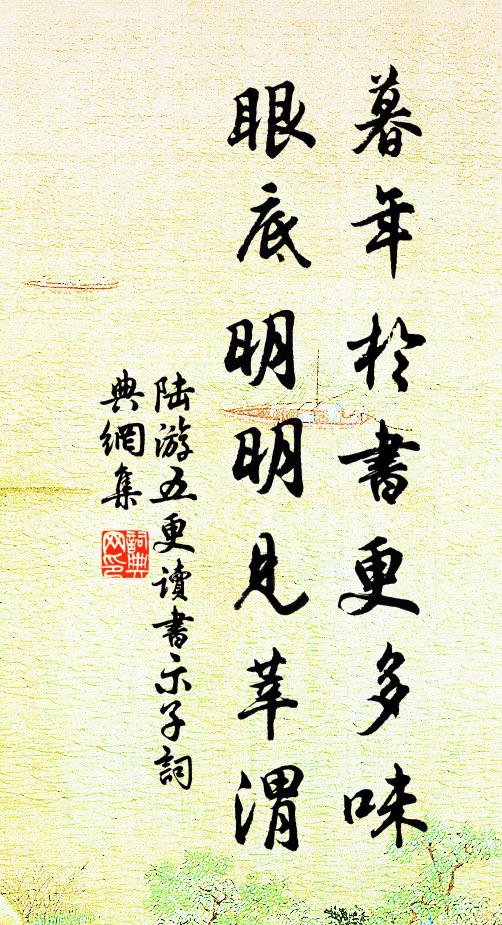 暮年於書更多味
眼底明明見莘渭
陸游五更讀書示子詞
典網集
詞典
网印